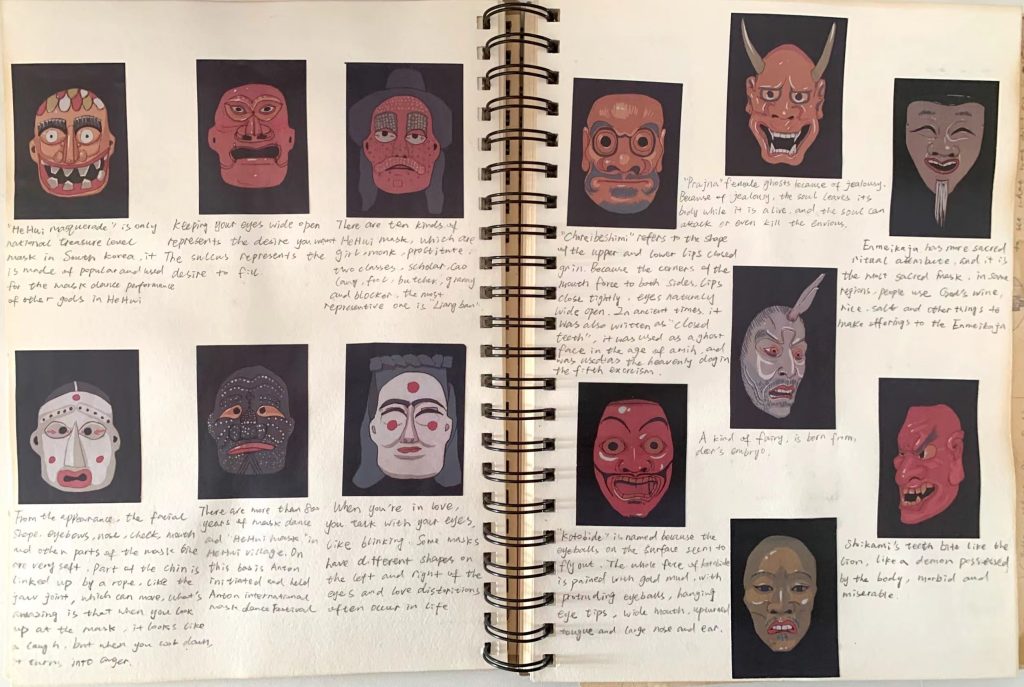 "HeHui masquerade" is only
national treasure level
mask in South Korea, it
is made of popular and used
for the mask dance performance
of other gods in HeHui
Keeping your eyes wide open
represents the desire you want
The sulcus represents the
desire to fuil.
There are ten kinds of
HeHui mask, which are
girl, monk, prostitute,
two classes, scholar, Cao
Lang, fuil, butcher, granny
and blocker, the most
representive one is "Liang ban"
From the appearance, the facial
shape, eyebows, nose, cheek, mouth
and other parts of the mask bone
are very soft. Part of the chin is
linked up by a rope. Like the
jaw joint, which can move, what's
amazing is that when you look
up at the mask, it looks like
a laugh, but when you look down,
it turns into anger.
There are more than 800
years of mask dance
and "HeHui mask" in
HeHui village. On
this basis Anton
initiated and held
Anton international
mask dance Festival
When you're in love,
you talk with your eyes,
like blinking. Some masks
have different shapes on
the left and right of the
eyes and love distortions
often occur in life
"Prajna" female ghosts because of jealousy.
Because of jealousy, the soul leaves its
body while it is alive, and the soul can
attack or even kill the envious.
refers to the shape
of the upper and lower lips closed
grin. Because the corners of the
mouth force to both sides, Lips
close tightly, eyes naturally
wide open. In ancient times, it
was also written as "closed
teeth", it was used as a ghost
face in the age of and
was used as the heavenly dog in
the fifth exorcism.
Enmeikaja has more sacred
ritual attribute, and it is
the most sacred mask, in some
regions, people use God's wine,
rice, salt and other things to
make offerings to the Enmeikaja
A kind of fairy, is born from
deer's embryo.
"Kotobide" is named because the
eyeballs on the surface seem to
fly out. The whole face of kotobide
is pained with gold mud, with
protruding eyeballs, hanging
eye tips, wide mouth, upturned
tongue and large nose and ear.
Shikami's teeth bite like the
lion, like a demon possessed
by the body, morbid and
miserable.